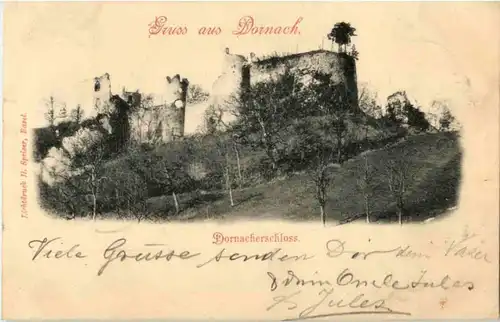 Gruss aus Dornach.
Lichtdruck D. Speiser, Basel.
Dornacherschloss.
Viele Grüsse senden Dir dem Vater
& dein Oncle Jules
Jules